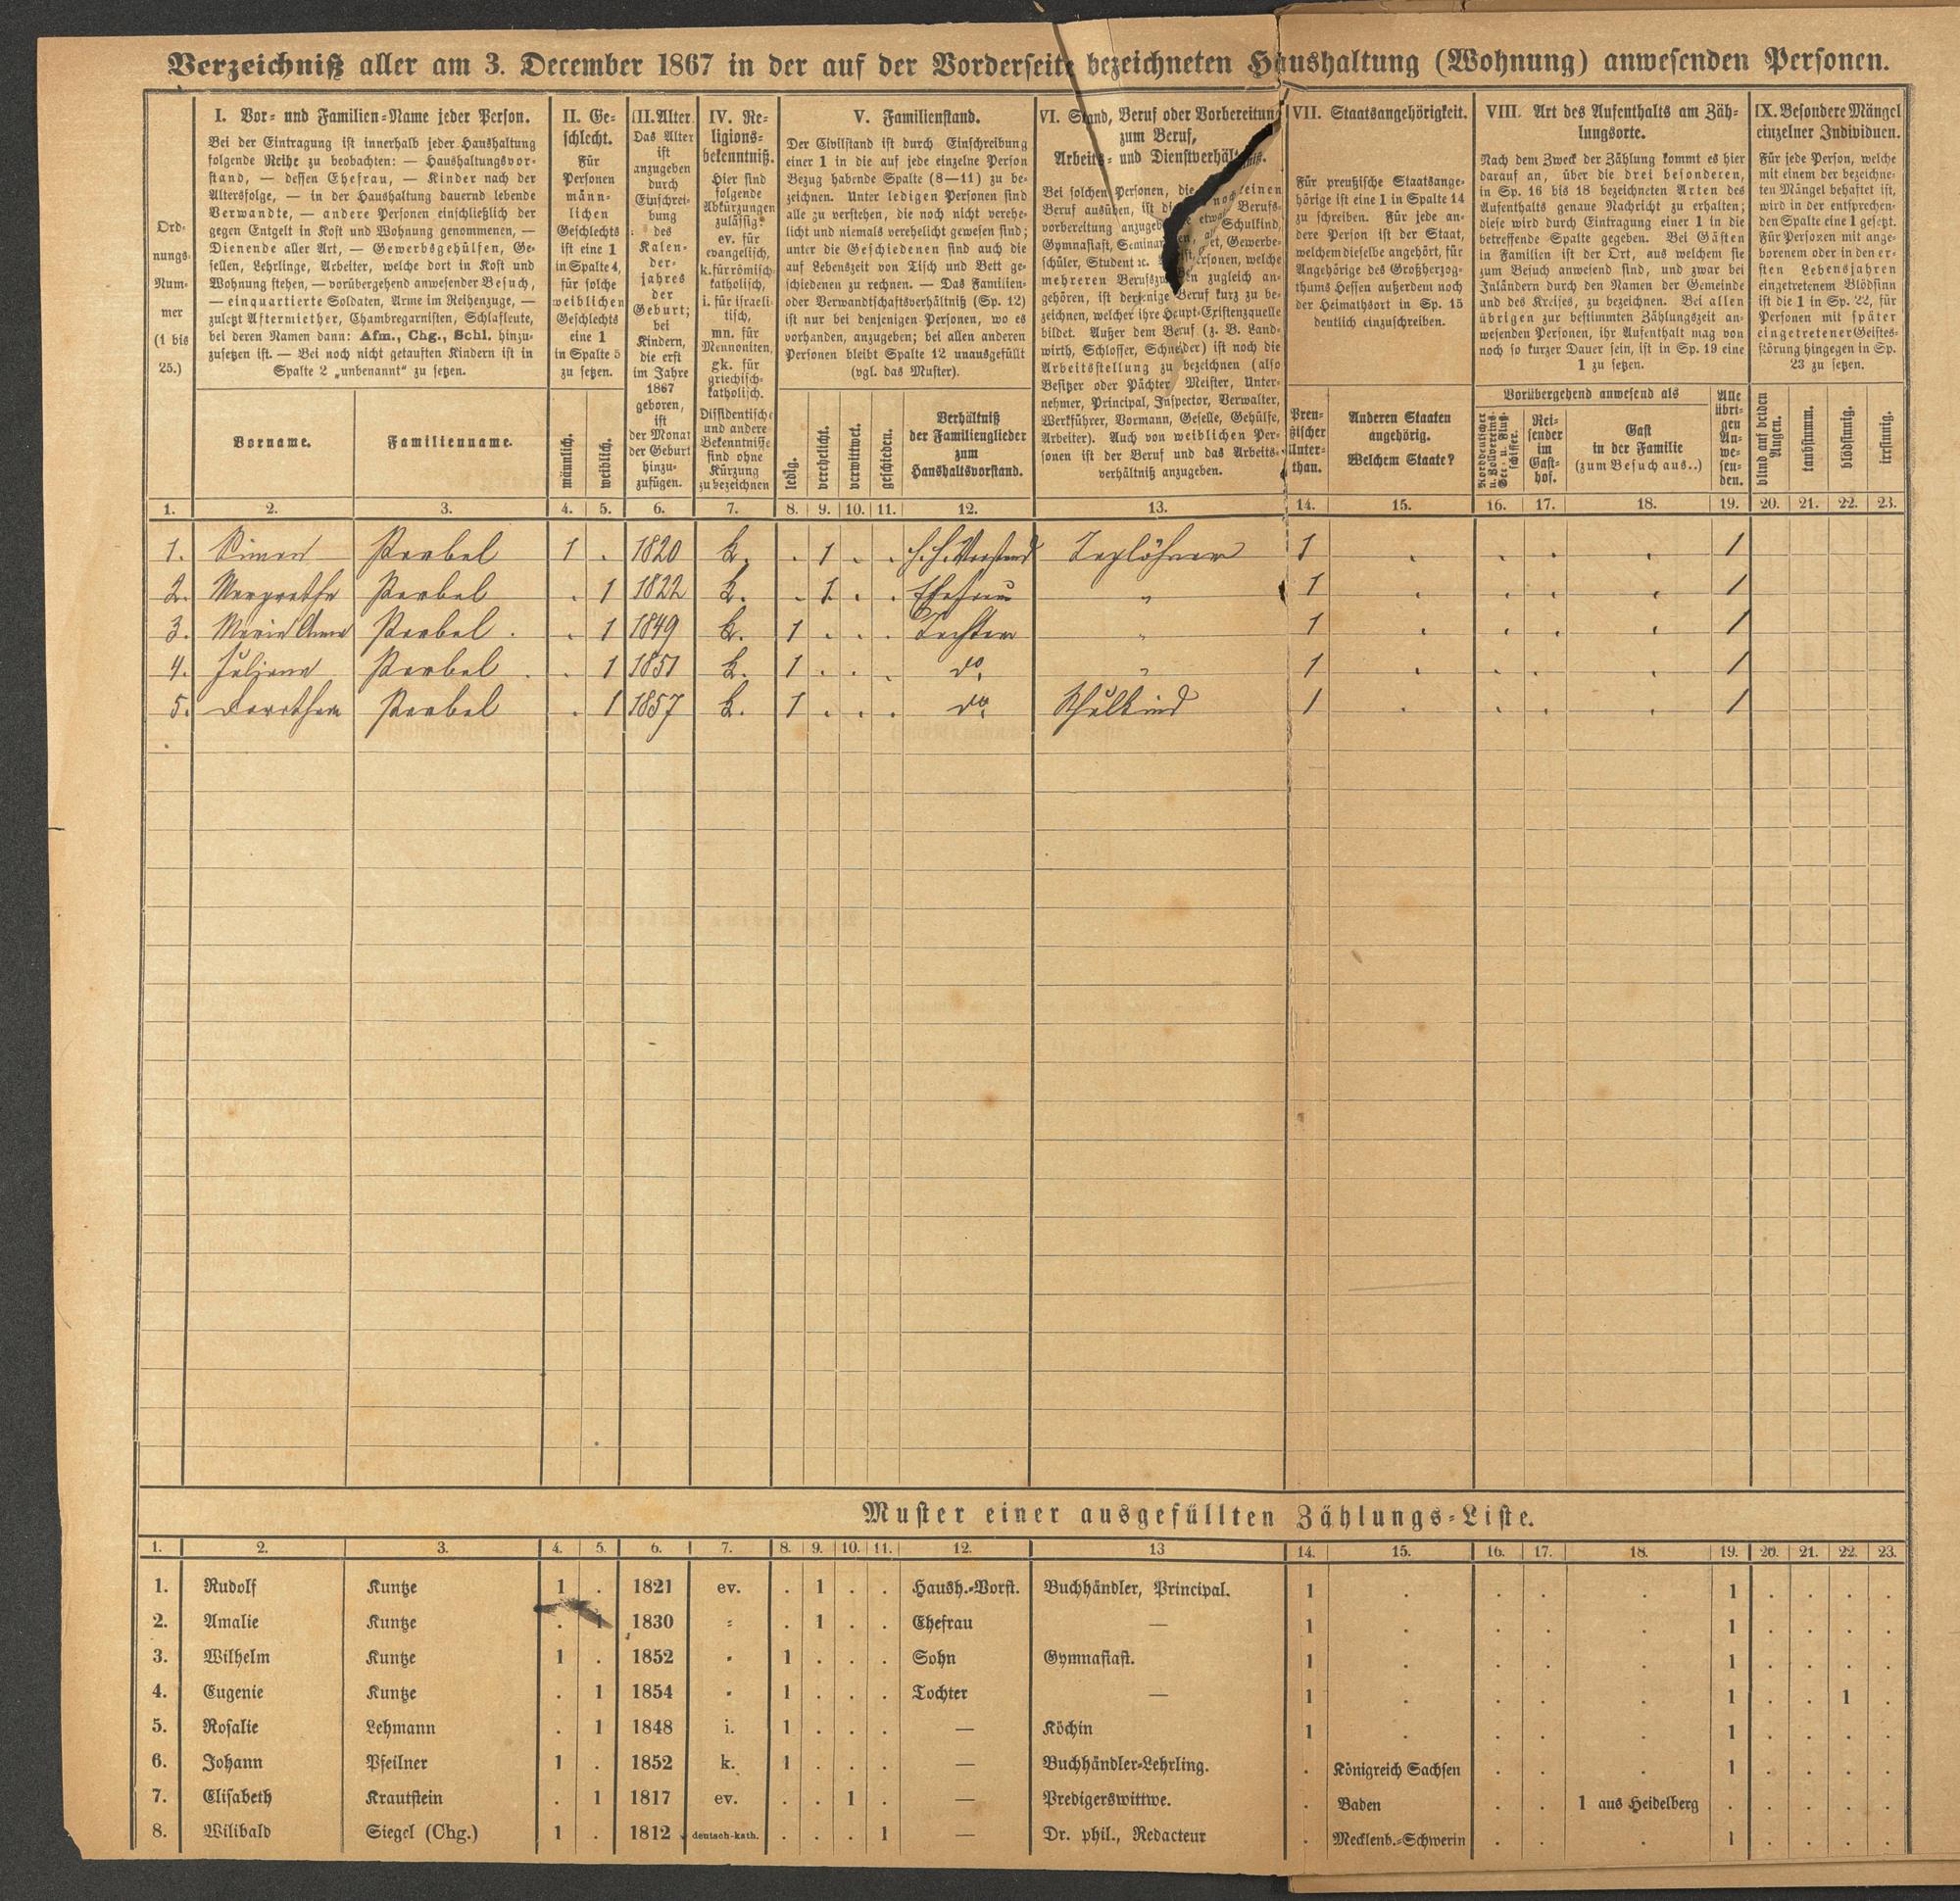 Verzeichniß aller am 3. December 1867 in der auf der Vorderseite bezeichneten Haushaltung (Wohnung) anwesenden Personen.
Ord-
nungs-
Num-
mer
(1 bis
25.)
I. Vor- und Familien-Name jeder Person.
Bei der Eintragung ist innerhalb jeder Haushaltung
folgende Reihe zu beobachten: — Haushaltungsvor-
stand, — dessen Ehefrau, — Kinder nach der
Altersfolge, — in der Haushaltung dauernd lebende
Verwandte, — andere Personen einschließlich der
gegen Entgelt in Kost und Wohnung genommenen, —
Dienende aller Art, — Gewerbsgehülfen, Ge-
sellen, Lehrlinge, Arbeiter, welche dort in Kost und
Wohnung stehen, — vorübergehend anwesender Besuch,
— einquartierte Soldaten, Arme im Reihenzuge, —
zuletzt Aftermiether, Chambregarnisten, Schlafleute,
bei deren Namen dann: Afm., Chg., Schl. hinzu-
zusetzen ist. — Bei noch nicht getauften Kindern ist in
Spalte 2 „unbenannt" zu setzen.
Vorname.
Familienname.
II. Ge-
schlecht.
Für
Personen
männ-
lichen
Geschlechts
ist eine 1
in Spalte 4,
für solche
weiblichen
Geschlechts
eine 1
in Spalte 5
zu setzen.
männlich.
weiblich.
III. Alter.
Das Alter
ist
anzugeben
durch
Einschrei-
bung
des
Kalen-
der-
jahres
der
Geburt;
bei
Kindern,
die erst
im Jahre
1867
geboren,
ist
der Monat
der Geburt
hinzu-
zufügen.
IV. Re-
ligions-
bekenntniß.
Hier sind
folgende
Abkürzungen
zulässig:
ev. für
evangelisch,
k. für römisch-
katholisch,
i. für israeli-
tisch,
mn. für
Mennoniten,
gk. für
griechisch-
katholisch.
Dissidentische
und andere
Bekenntnisse
sind ohne
Kürzung
zu bezeichnen
V. Familienstand.
Der Civilstand ist durch Einschreibung
einer 1 in die auf jede einzelne Person
Bezug habende Spalte (8—11) zu be-
zeichnen. Unter ledigen Personen sind
alle zu verstehen, die noch nicht verehe-
licht und niemals verehelicht gewesen sind;
unter die Geschiedenen sind auch die
auf Lebenszeit von Tisch und Bett ge-
schiedenen zu rechnen. — Das Familien-
oder Verwandtschaftsverhältniß (Sp. 12)
ist nur bei denjenigen Personen, wo es
vorhanden, anzugeben; bei allen anderen
Personen bleibt Spalte 12 unausgefüllt
(vgl. das Muster).
ledig.
verehelicht.
verwittwet.
geschieden.
Verhältniß
der Familienglieder
zum
Haushaltsvorstand.
VI. Stand, Beruf oder Vorbereitung
zum Beruf,
Arbeits- und Dienstverhältniß.
Bei solchen Personen, die einen
Beruf ausüben, ist die etwa Berufs-
vorbereitung anzugeben, Schulkind,
Gymnasiast, Seminar Gewerbe-
schüler, Student ꝛc. Personen, welche
mehreren zugleich an-
gehören, ist derjenige Beruf kurz zu be-
zeichnen, welcher ihre Haupt-Existenzquelle
bildet. Außer dem Beruf (z. B. Land-
wirth, Schlosser, Schneider) ist noch die
Arbeitsstellung zu bezeichnen (also
Besitzer oder Pächter, Meister, Unter-
nehmer, Principal, Inspector, Verwalter,
Werkführer, Vormann, Geselle, Gehülfe,
Arbeiter). Auch von weiblichen Per-
sonen ist der Beruf und das Arbeits-
verhältniß anzugeben.
VII. Staatsangehörigkeit.
Für preußische Staatsange-
hörige ist eine 1 in Spalte 14
zu schreiben. Für jede an-
dere Person ist der Staat,
welchem dieselbe angehört, für
Angehörige des Großherzog-
thums Hessen außerdem noch
der Heimathsort in Sp. 15
deutlich einzuschreiben.
Preu-
ßischer
Unter-
than.
Anderen Staaten
angehörig.
Welchem Staate?
VIII. Art des Aufenthalts am Zäh-
lungsorte.
Nach dem Zweck der Zählung kommt es hier
darauf an, über die drei besonderen,
in Sp. 16 bis 18 bezeichneten Arten des
Aufenthalts genaue Nachricht zu erhalten;
diese wird durch Eintragung einer 1 in die
betreffende Spalte gegeben. Bei Gästen
in Familien ist der Ort, aus welchem sie
zum Besuch anwesend sind, und zwar bei
Inländern durch den Namen der Gemeinde
und des Kreises, zu bezeichnen. Bei allen
übrigen zur bestimmten Zählungszeit an-
wesenden Personen, ihr Aufenthalt mag von
noch so kurzer Dauer sein, ist in Sp. 19 eine
1 zu setzen.
Vorübergehend anwesend als
Norddeutscher
u. Vollvereins-
See- u. Fluß-
schiffer.
Rei-
sender
im
Gast-
hof.
Gast
in der Familie
(zum Besuch aus..)
Alle
übri-
gen
An-
we-
sen-
den.
IX. Besondere Mängel
einzelner Individuen.
Für jede Person, welche
mit einem der bezeichne-
ten Mängel behaftet ist,
wird in der entsprechen-
den Spalte eine 1 gesetzt.
Für Personen mit ange-
borenem oder in den er-
sten Lebensjahren
eingetretenem Blödsinn
ist die 1 in Sp. 22, für
Personen mit später
eingetretener Geistes-
störung hingegen in Sp.
23 zu setzen.
blind auf beiden
Augen.
taubstumm.
blödsinnig.
irrsinnig.
1. 2. 3. 4. 5. 6. 7. 8. 9. 10. 11. 12. 13. 14. 15. 16. 17. 18. 19. 20. 21. 22. 23.
1. Simon 1 . 1820 k. . 1 . . H. H. Vorstand Taglöhner 1 . . . . 1
2. Margretha . 1 1822 k. . 1 . . Ehefrau " 1 . . . . 1
3. Maria Anna . 1 1849 k. 1 . . . Tochter " 1 . . . . 1
4. Juliana . 1 1851 k. 1 . . . do. " 1 . . . . 1
5. Dorothea . 1 1857 k. 1 . . . do. Schulkind 1 . . . . 1
Muster einer ausgefüllten Zählungs-Liste.
1. 2. 3. 4. 5. 6. 7. 8. 9. 10. 11. 12. 13 14. 15. 16. 17. 18. 19. 20. 21. 22. 23.
1. Rudolf Kuntze 1 . 1821 ev. . 1 . . Haush.-Vorst. Buchhändler, Principal. 1 . . . . 1 . . . .
2. Amalie Kuntze . 1 1830 " . 1 . . Ehefrau — 1 . . . . 1 . . . .
3. Wilhelm Kuntze 1 . 1852 " 1 . . . Sohn Gymnasiast. 1 . . . . 1 . . . .
4. Eugenie Kuntze . 1 1854 " 1 . . . Tochter — 1 . . . . 1 . . 1 .
5. Rosalie Lehmann . 1 1848 i. 1 . . . — Köchin 1 . . . . 1 . . . .
6. Johann Pfeilner 1 . 1852 k. 1 . . . — Buchhändler-Lehrling. . Königreich Sachsen . . . 1 . . . .
7. Elisabeth Krautstein . 1 1817 ev. . . 1 . — Predigerswittwe. . Baden . . 1 aus Heidelberg . . . . .
8. Wilibald Siegel (Chg.) 1 . 1812 deutsch-kath. . . . 1 — Dr. phil., Redacteur . Mecklenb.-Schwerin . . . 1 . . . .